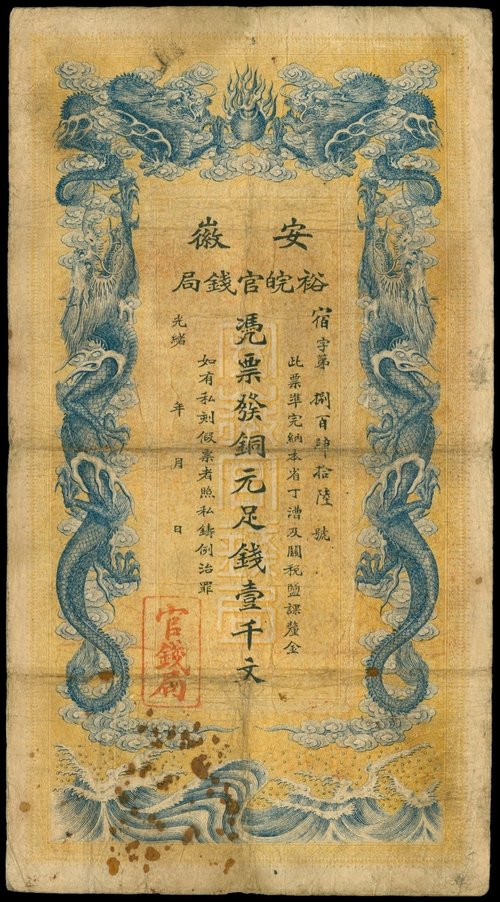 安徽
裕皖官錢局
宿字第捌百陸拾陸號
此票準完納本省丁漕及關稅鹽課釐金
憑票發銅元足錢壹千文
如有私刻假票者照私鑄例治罪
光緒 年 月 日
官錢局